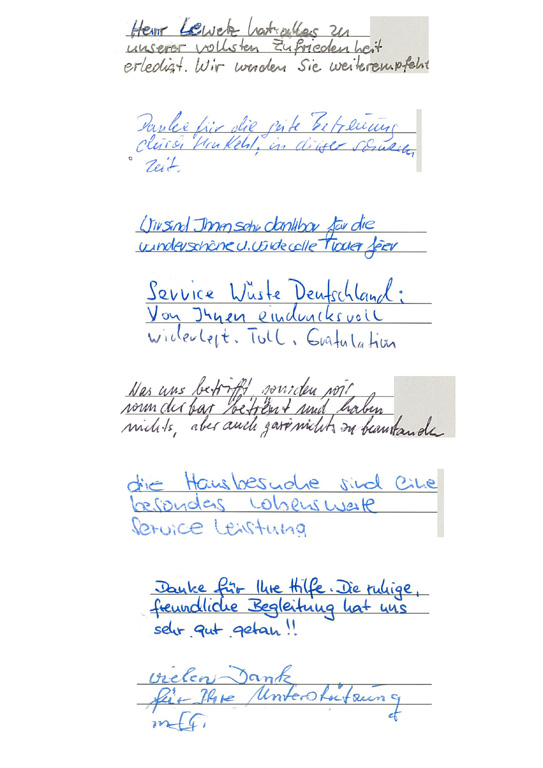 Herr Lewek hat alles zu
unserer vollsten Zufriedenheit
erledigt. Wir werden Sie weiterempfehl
Danke für die gute Betreuung
durch in dieser schweren
Zeit.
Wir sind Ihnen sehr dankbar für die
wunderschöne u. würdevolle Trauerfeier
Service Wüste Deutschland:
Von Ihnen eindrucksvoll
widerlegt. Toll. Gratulation
Was uns betrifft, wurden wir
wunderbar betreut und haben
nichts, aber auch garnichts zu beanstanden
die Hausbesuche sind eine
besonders lobenswerte
Service Leistung
Danke für Ihre Hilfe. Die ruhige,
freundliche Begleitung hat uns
sehr gut getan!!
vielen Dank
für Ihre Unterstützung